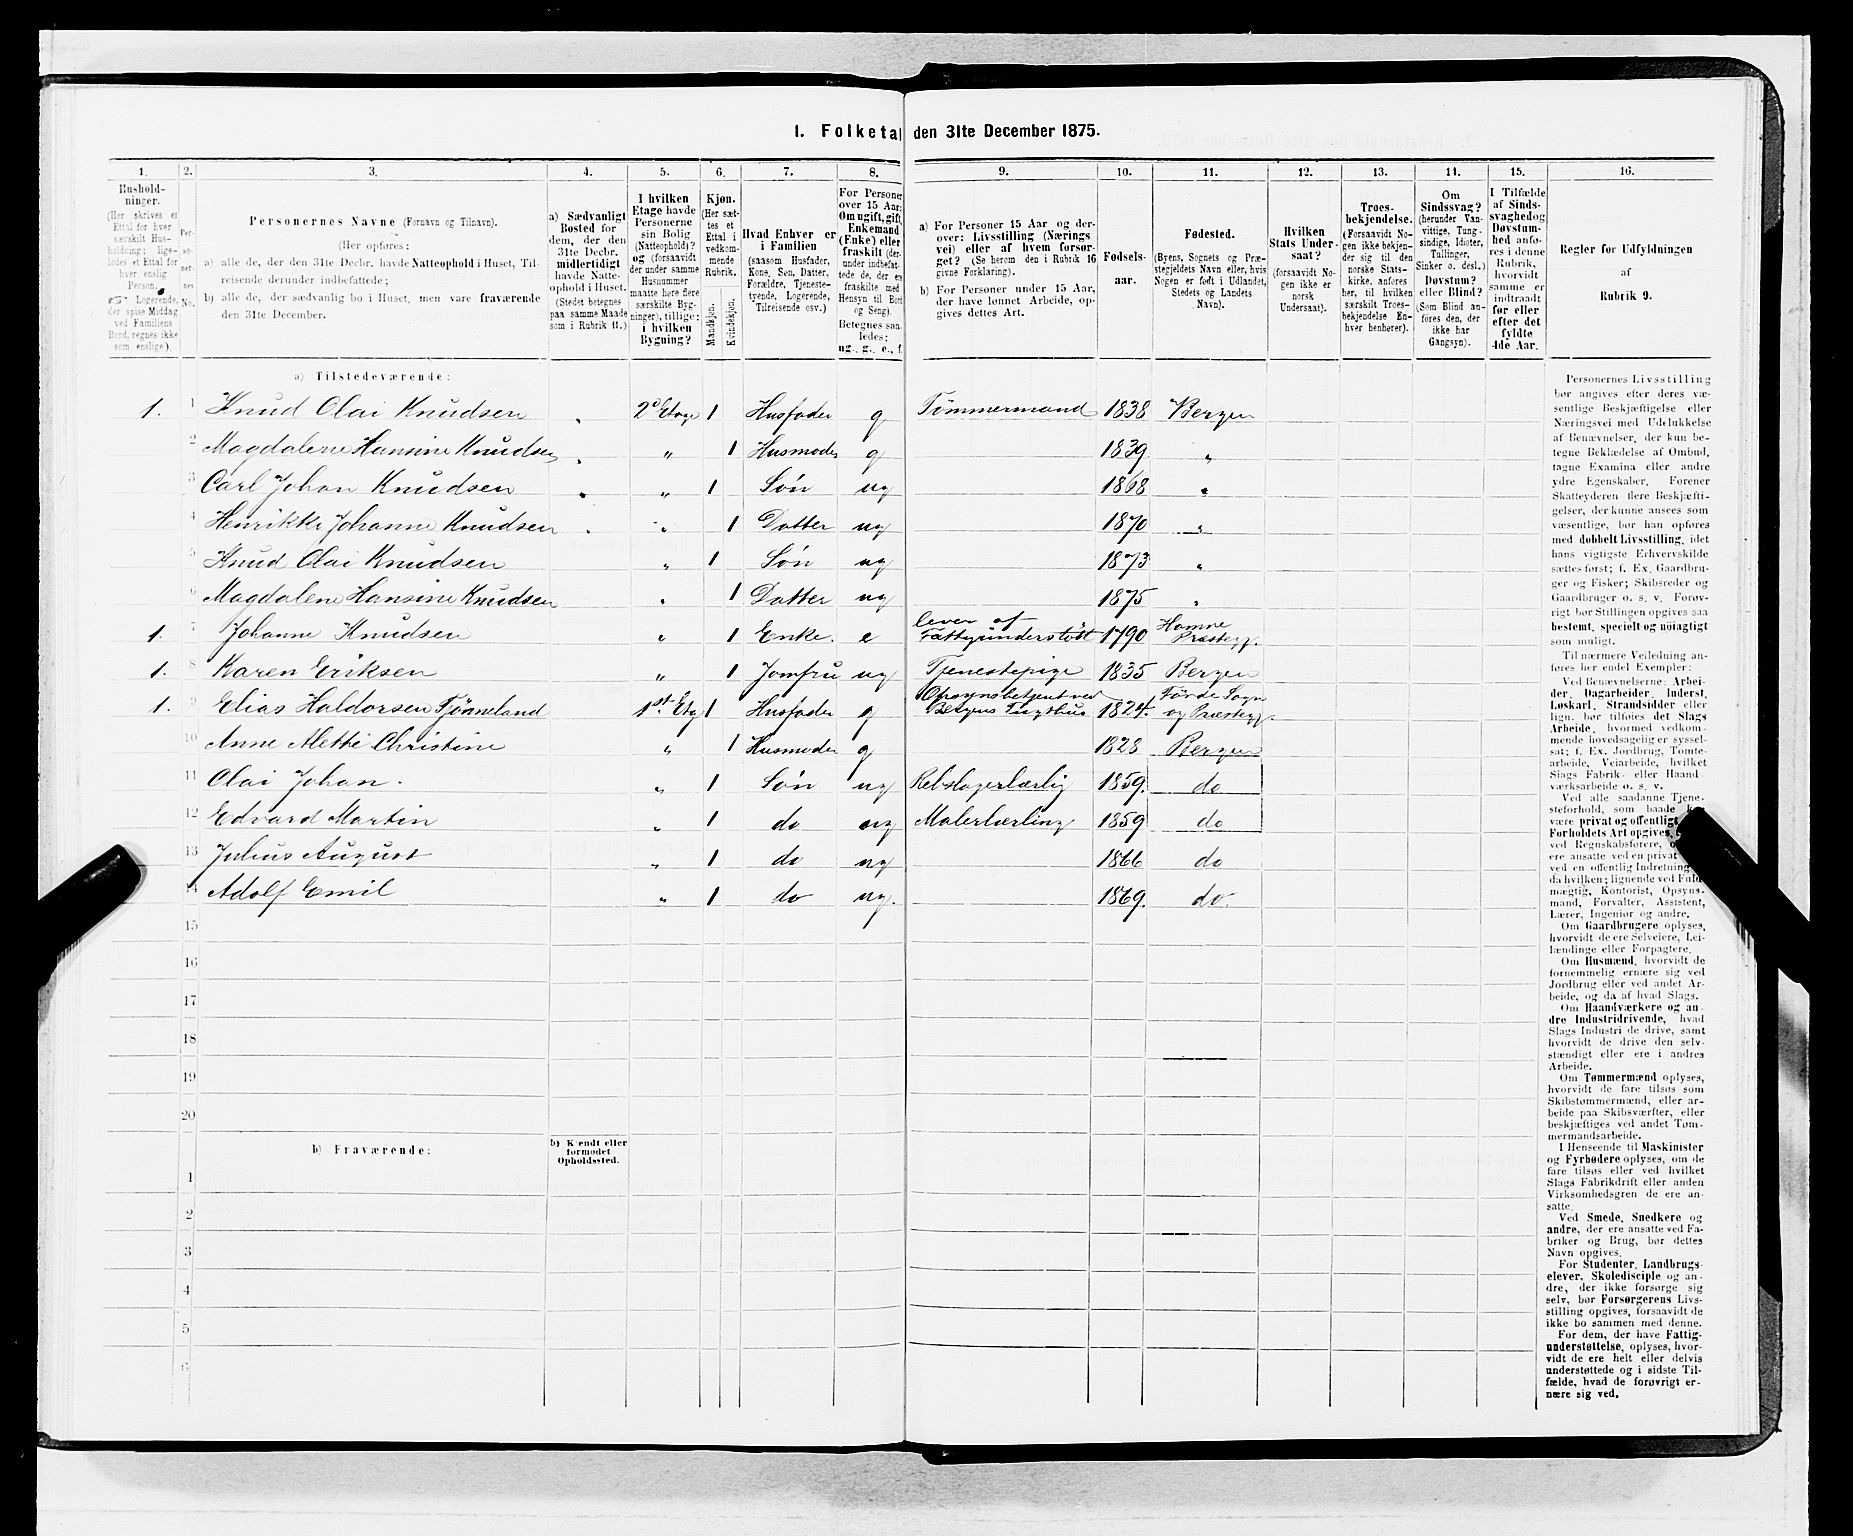 1. Folketal den 31te December 1875.
1. 2. 3. 4. 5. 6. 7. 8. 9. 10. 11. 12. 13. 14. 15. 16.
Hushold-
ninger.
(Her skrives et
Ettal for hver
særskilt Hus-
holdning; lige-
ledes et Ettal for
hver enslig
Person.
☞ Logerende,
der spise Middag
ved Familiens
Bord, regnes ikke
som enslige).
Per-
so-
ner-
nes
No.
Personernes Navne (Fornavn og Tilnavn).
(Her opføres:
a) alle de, der den 31te Decbr. havde Natteophold i Huset, Til-
reisende derunder indbefattede;
b) alle de, der sædvanlig bo i Huset, men vare fraværende
den 31te December.
a) Sædvanligt
Bosted for
dem, der den
31te Decbr.
midlertidigt
havde Natte-
ophold i Huset.
(Stedet betegnes
paa samme Maade
som i Rubrik 11.)
I hvilken
Etage havde
Personerne
sin Bolig
(Natteophold)?
og (forsaavidt
der under samme
Husnummer
maatte høre flere
særskilte Byg-
ninger), tillige:
i hvilken
Bygning?
Kjøn.
(Her sæt-
tes et
Ettal i
vedkom-
mende
Rubrik.
Mandkjøn.
Kvindekjøn.
Hvad Enhver er
i Familien
(saasom Husfader,
Kone, Søn, Datter,
Forældre, Tjeneste-
tyende, Logerende,
Tilreisende osv.)
For Personer
over 15 Aar:
Om ugift, gift,
Enkemand
(Enke) eller
fraskilt (der-
under indbefat-
tede de, der ere
fraskilte med
Hensyn til Bord
og Seng).
Betegnes saa-
ledes:
ug., g., e., f.
a) For Personer 15 Aar og der-
over: Livsstilling (Nærings
vei) eller af hvem forsør-
get? (Se herom den i Rubrik 16
givne Forklaring).
b) For Personer under 15 Aar,
der have lønnet Arbeide, op-
gives dettes Art.
Fødsels-
aar.
Fødested.
(Byens, Sognets og Præ-
stegjeldets Navn eller, hvis
Nogen er født i Udlandet,
Stedets og Landets
Navn).
Hvilken
Stats Under-
saat?
(forsaavidt No-
gen ikke er
norsk
Undersaat).
Troes-
bekjendelse.
(Forsaavidt No-
gen ikke bekjen-
der sig til den
norske Stats-
kirke, anføres
her, til hvilken
særskilt Troes-
bekjendelse En-
hver henhører).
Om
Sindssvag?
(herunder Van-
vittige, Tung-
sindige, Idioter,
Tullinger,
Sinker o. desl.)
Døvstum?
eller Blind?
(Som Blind an-
føres den, der
ikke har
Gangsyn).
I Tilfælde
af Sinds-
svaghed og
Døvstum-
hed anfø-
res i denne
Rubrik,
hvorvidt
samme er
indtraadt
før eller
efter det
fyldte
4de Aar.
Regler for Udfyldningen
af
Rubrik 9.
a) Tilstedeværende:
1. 1 Knud Olai Knudsen 2d Etage 1 Husfader g Tømmermand 1838 Bergen
2 Magdalene Hansine Knudsen " 1 Husmoder g 1839 "
3 Carl Johan Knudsen " 1 Søn ug 1868 "
4 Henrikke Johanne Knudsen " 1 Datter ug 1870 "
5 Knud Olai Knudsen " 1 Søn ug 1873 "
6 Magdalene Hansine Knudsen " 1 Datter ug 1875 "
1. 7 Johanne Knudsen " 1 Enke. e lever af Fattigunderstøtt 1790 Hamne Præstegj.
1. 8 Karen Eriksen " 1 Jomfru ug Tjenestepige 1835 Bergen
1. 9 Elias Haldorsen Tjønneland 1st Etag 1 Husfader g Opsynsbetjent ved Bergens Tugthus 1824. Førde Sogn og Præstegj.
10 Anne Alette Christine " 1 Husmoder g 1828 Bergen
11 Olai Johan. " 1 Søn ug Rebslagerlærlig 1859. do
12 Edvard Martin " 1 do ug Malerlærling 1859 do
13 Julius August " 1 do ug 1866 do
14 Adolf Emil " 1 do ug. 1869. do.
15
16
17
18
19
20
b) Fraværende:
b) Kjendt eller
formodet
Opholdssted.
1
2
3
4
5
6
Personernes Livsstilling
bør angives efter deres væ-
sentlige Beskjæftigelse eller
Næringsvei med Udelukkelse
af Benævnelser, der kun be-
tegne Beklædelse af Ombud,
tagne Examina eller andre
ydre Egenskaber. Forener
Skatteyderen flere Beskjæfti-
gelser, der kunne ansees som
væsentlige, bør han opføres
med dobbelt Livsstilling, idet
hans vigtigste Erhvervskilde
sættes først; f. Ex. Gaardbru-
ger og Fisker; Skibsreder og
Gaardbruger o. s. v. Forøv-
rigt bør Stillingen opgives saa
bestemt, specielt og nøiagtigt
som muligt.
Til nærmere Veiledning an-
føres her endel Exempler:
Ved Benævnelserne: Arbei-
der, Dagarbeider, Inderst,
Løskarl, Strandsidder eller
lign. bør tilføies det Slags
Arbeide, hvormed vedkom-
mende hovedsagelig er syssel-
sat; f. Ex. Jordbrug, Tomte-
arbeide, Veiarbeide, hvilket
Slags Fabrik- eller Haand-
værksarbeide o. s. v.
Ved alle saadanne Tjene-
steforhold, som baade k
være privat og offentligt
Forholdets Art opgives,
ved Regnskabsførere,
ere ansatte ved en privat
ved en offentlig Indretning
da hvilken; lignende ved Fuld-
mægtig, Kontorist, Opsyns-
mand, Forvalter, Assistent,
Lærer, Ingeniør og andre.
Om Gaardbrugere oplyses,
hvorvidt de ere Selveiere, Lei-
lændinge eller Forpagtere.
Om Husmænd, hvorvidt de
fornemmelig ernære sig ved
Jordbrug eller ved andet Ar-
beide, og da af hvad Slags.
Om Haandværkere og an-
dre Industridrivende, hvad
Slags Industri de drive, samt
hvorvidt de drive den selv-
stændigt eller ere i andres
Arbeide.
Om Tømmermænd oplyses,
hvorvidt de fare tilsøs som
Skibstømmermænd, eller ar-
beide paa Skibsværfter, eller
beskjæftiges ved andet Tøm-
mermandsarbeide.
I Henseende til Maskinister
og Fyrbødere oplyses, om de
fare tilsøs eller ved hvilket
Slags Fabrikdrift eller anden
Virksomhedsgren de ere an-
satte.
Ved Smede, Snedkere og
andre, der ere ansatte ved Fa-
briker og Brug, bør dettes
Navn opgives.
For Studenter, Landbrugs-
elever, Skoledisciple og an-
dre, der ikke forsørge sig
selv, bør Forsørgerens Livs-
stilling opgives, forsaavidt de
ikke bo sammen med denne.
For dem, der have Fattig-
understøttelse, oplyses, hvor-
vidt de ere helt eller delvis
understøttede og i sidste Til-
fælde, hvad de forøvrigt er-
nære sig ved.